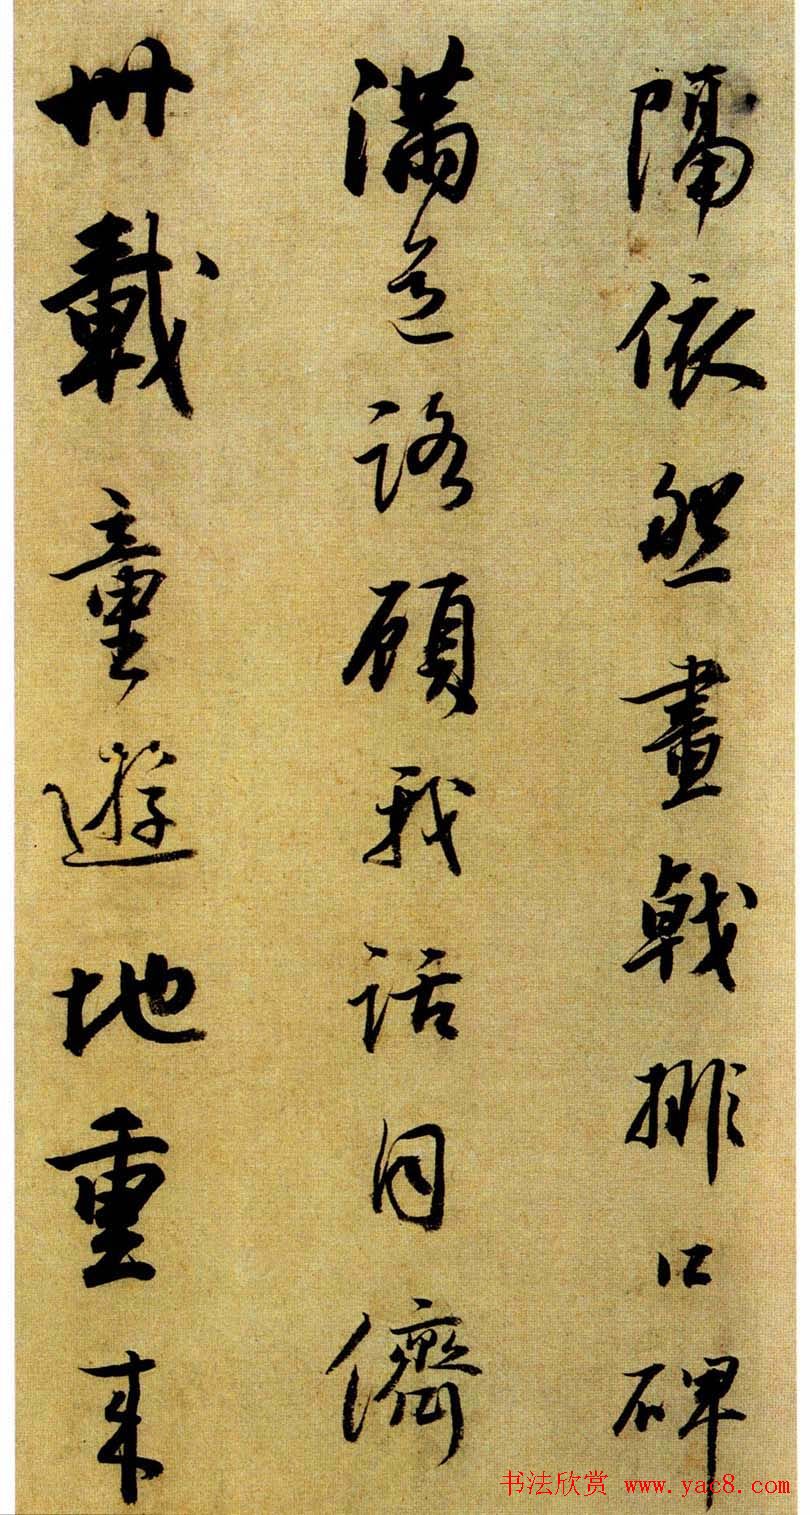 隔依然畫戟排口碑
滿道路顧我話同儕
卅載童遊地重來
书法欣赏 www.yac8.com